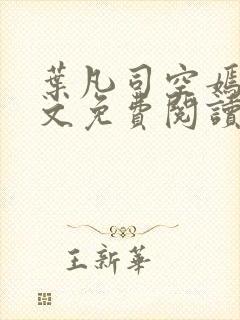 葉凡司空嫣
文免費閱讀
王新華